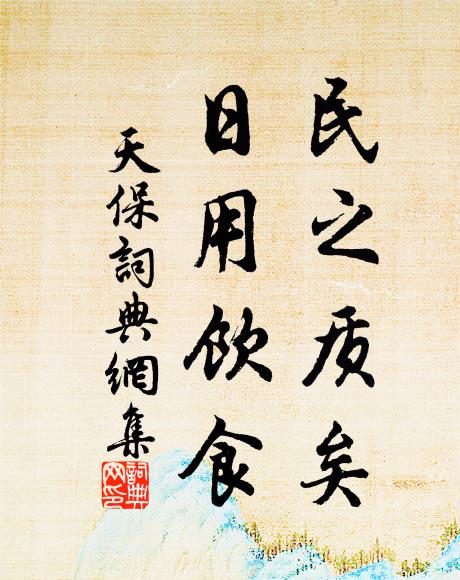 民之质矣
日用飲食
天保詞典網集
詞典網印